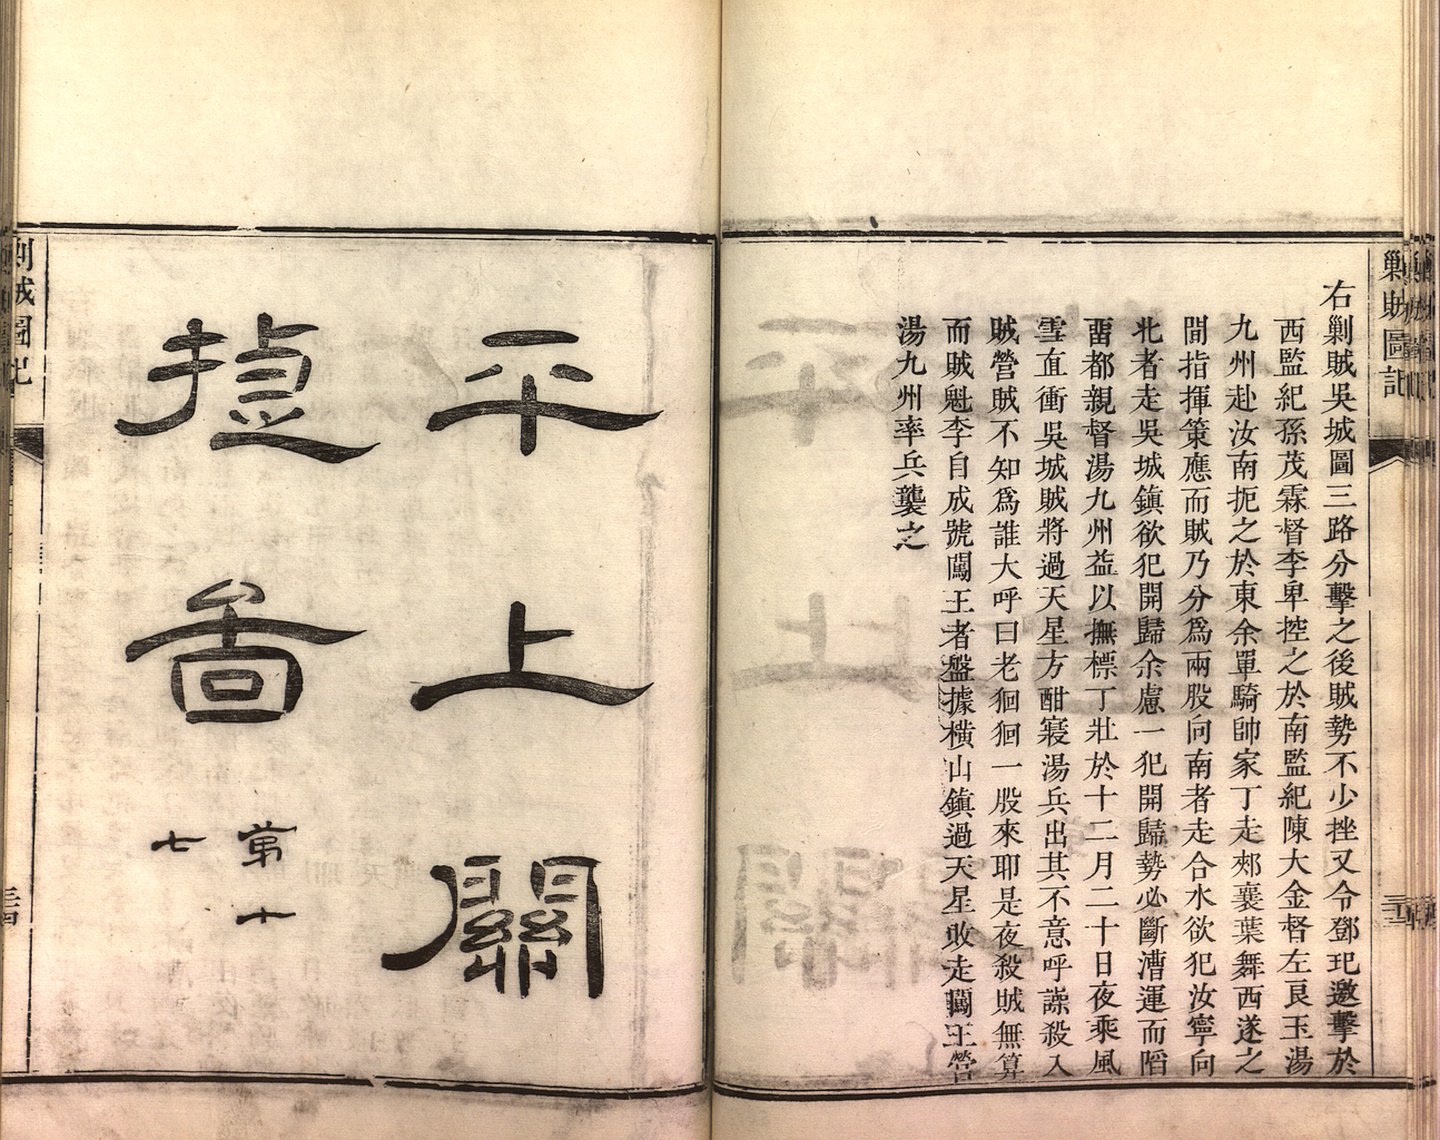 剿賊圖記
右剿賊吳城圖三路分擊之後賊勢不少挫又令鄧玘邀擊於
西監紀孫茂霖督李卑控之於南監紀陳大金督左良玉湯
九州赴汝南扼之於東余單騎帥家丁走郟襄葉舞西遂之
間指揮策應而賊乃分爲兩股向南者走合水欲犯汝寧向
北者走吳城鎮欲犯開歸余慮一犯開歸勢必斷漕運而陷
畱都親督湯九州益以撫標丁壯於十二月二十日夜乘風
雪直衝吳城賊將過天星方酣寢湯兵出其不意呼譟殺入
賊營賊不知爲誰大呼曰老徊徊一股來耶是夜殺賊無算
而賊魁李自成號闖王者盤據橫山鎮過天星敗走闖王營
湯九州率兵襲之
平上關
捷啚
第十
七
剿賊圖記
三十四